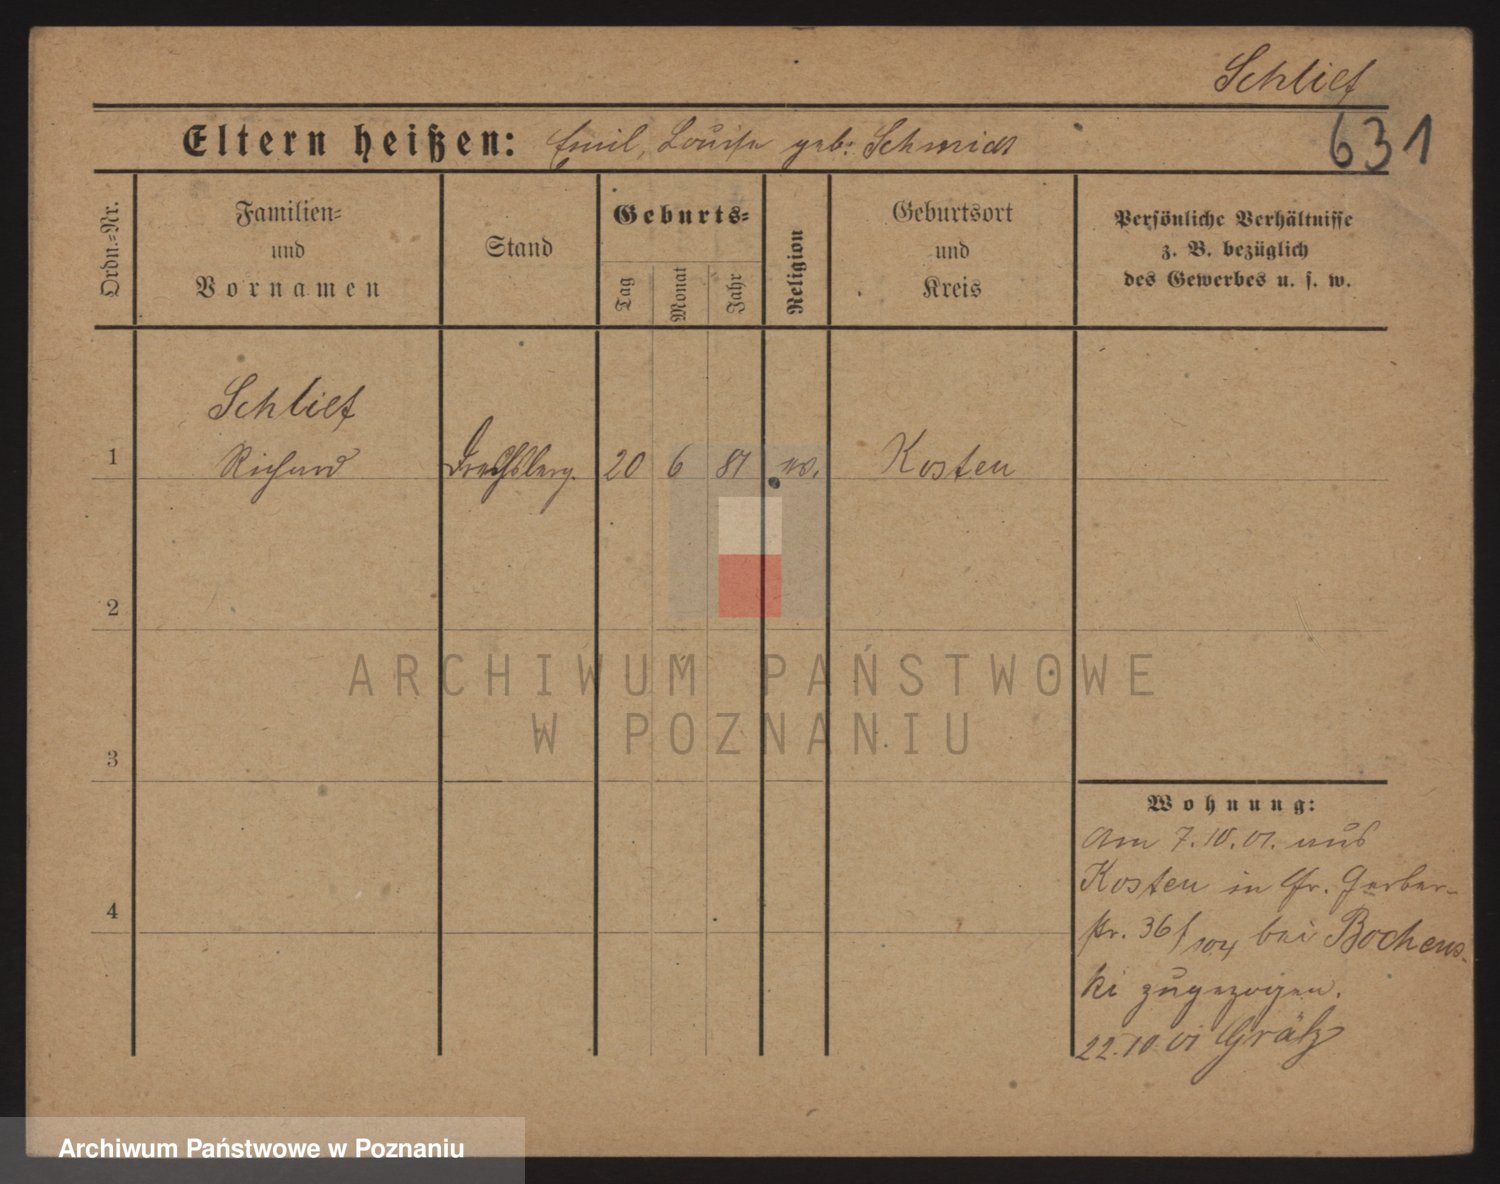 Schlief
Eltern heißen: Emil, Louise geb: Schmidt
631
Ordn.=Nr.
Familien=
und
Vornamen
Stand
Geburts=
Tag
Monat
Jahr
Religion
Geburtsort
und
Kreis
Persönliche Verhältnisse
z. B. bezüglich
des Gewerbes u. s. w.
Schlief
1 Richard 20 6 81 ev. Kosten
2
ARCHIWUM PAŃSTWOWE
W POZNANIU
3
Wohnung:
Am 7.10.01. aus
Kosten in Gr. Gerber-
4
str. 36 f/104 bei Bochens-
ki zugezogen.
22.10 01 Grätz
Archiwum Państwowe w Poznaniu